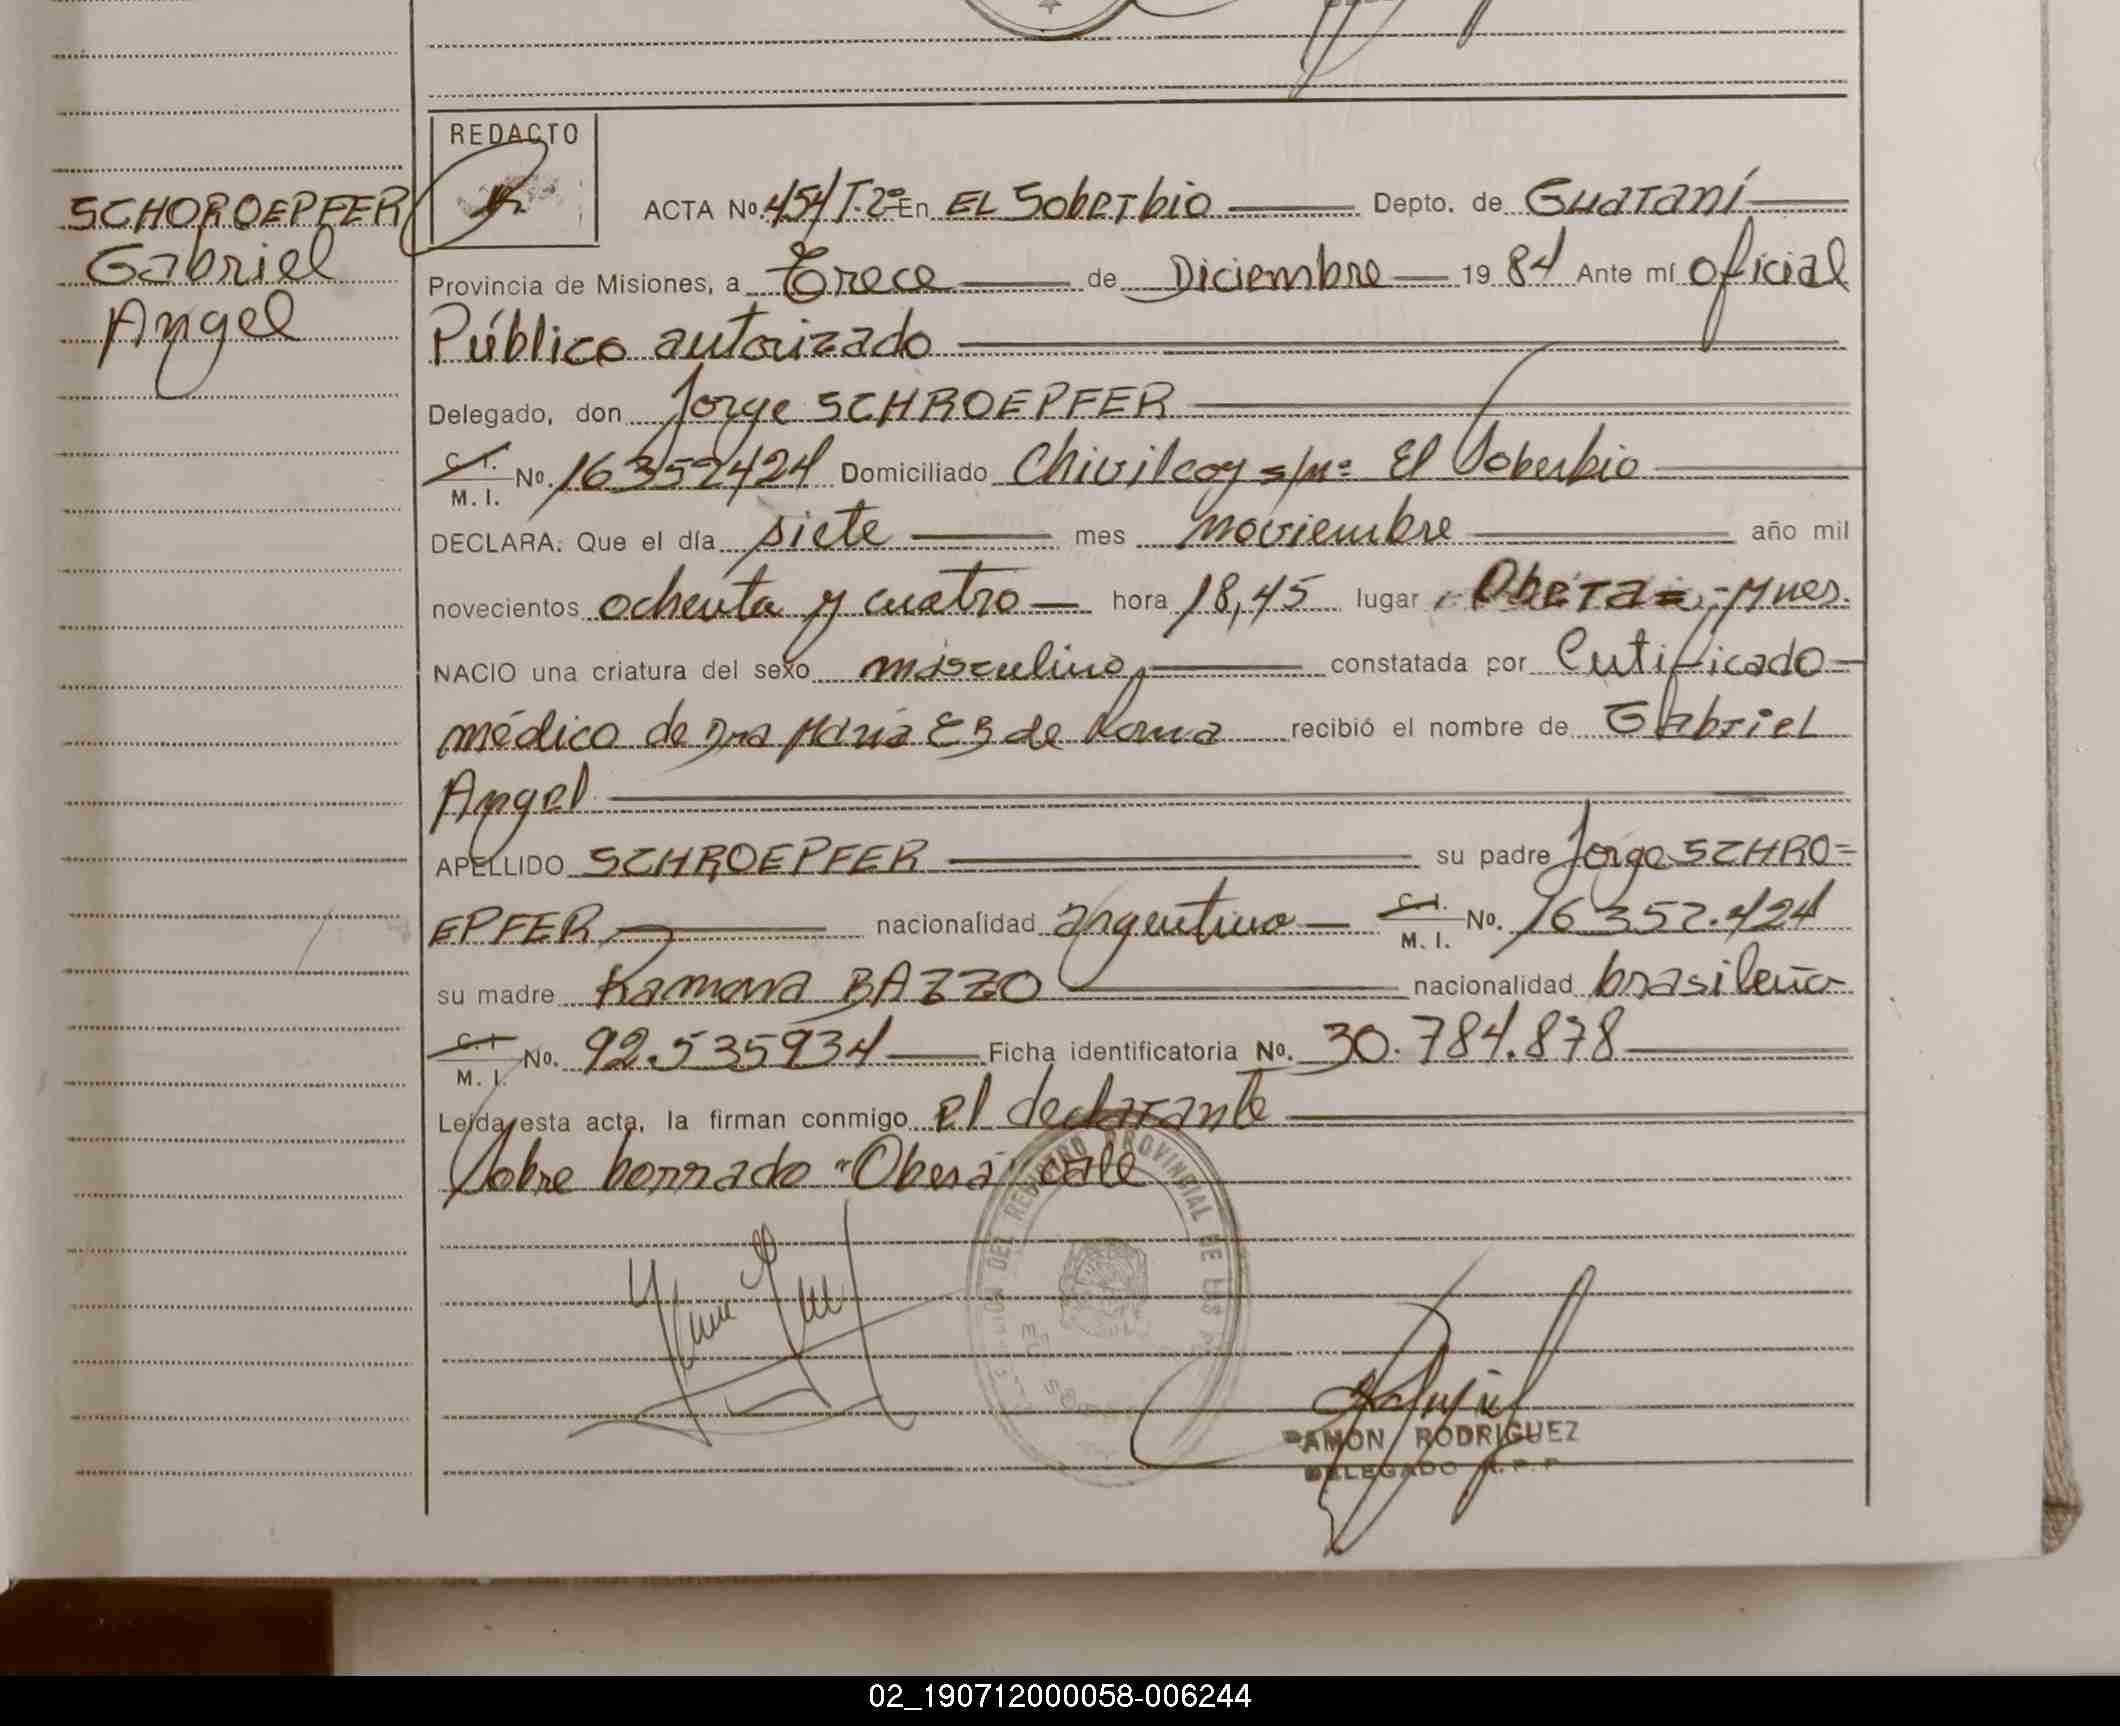 SCHOROEPFER
Gabriel
Angel
REDACTO
ACTA No. 454 T.2º En EL Soberbio Depto. de Guaraní
Provincia de Misiones, a Trece de Diciembre 19 84 Ante mí oficial
Público autorizado
Delegado, don Jorge SCHROEPFER
C. I. M. I. No. 16352424 Domiciliado Chivilcoy s/nº El Soberbio
DECLARA: Que el día siete mes noviembre año mil
novecientos ochenta y cuatro hora 18,45 lugar Oberá - Mnes.
NACIO una criatura del sexo masculino, constatada por Certificado
médico de Dra María EB de Roma recibió el nombre de Gabriel
Angel
APELLIDO SCHROEPFER su padre Jorge SCHRO=
EPFER nacionalidad argentino C. I. M. I. No. 16352.424
su madre Ramona BAZZO nacionalidad brasileña
C. I. M. I. No. 92.535934 Ficha identificatoria No. 30.784.878
Leída esta acta, la firman conmigo el declarante
Sobre borrado "Oberá" vale
DEL REGISTRO PROVINCIAL DE LAS
RAMON RODRIGUEZ
DELEGADO R.P.P
02_190712000058-006244